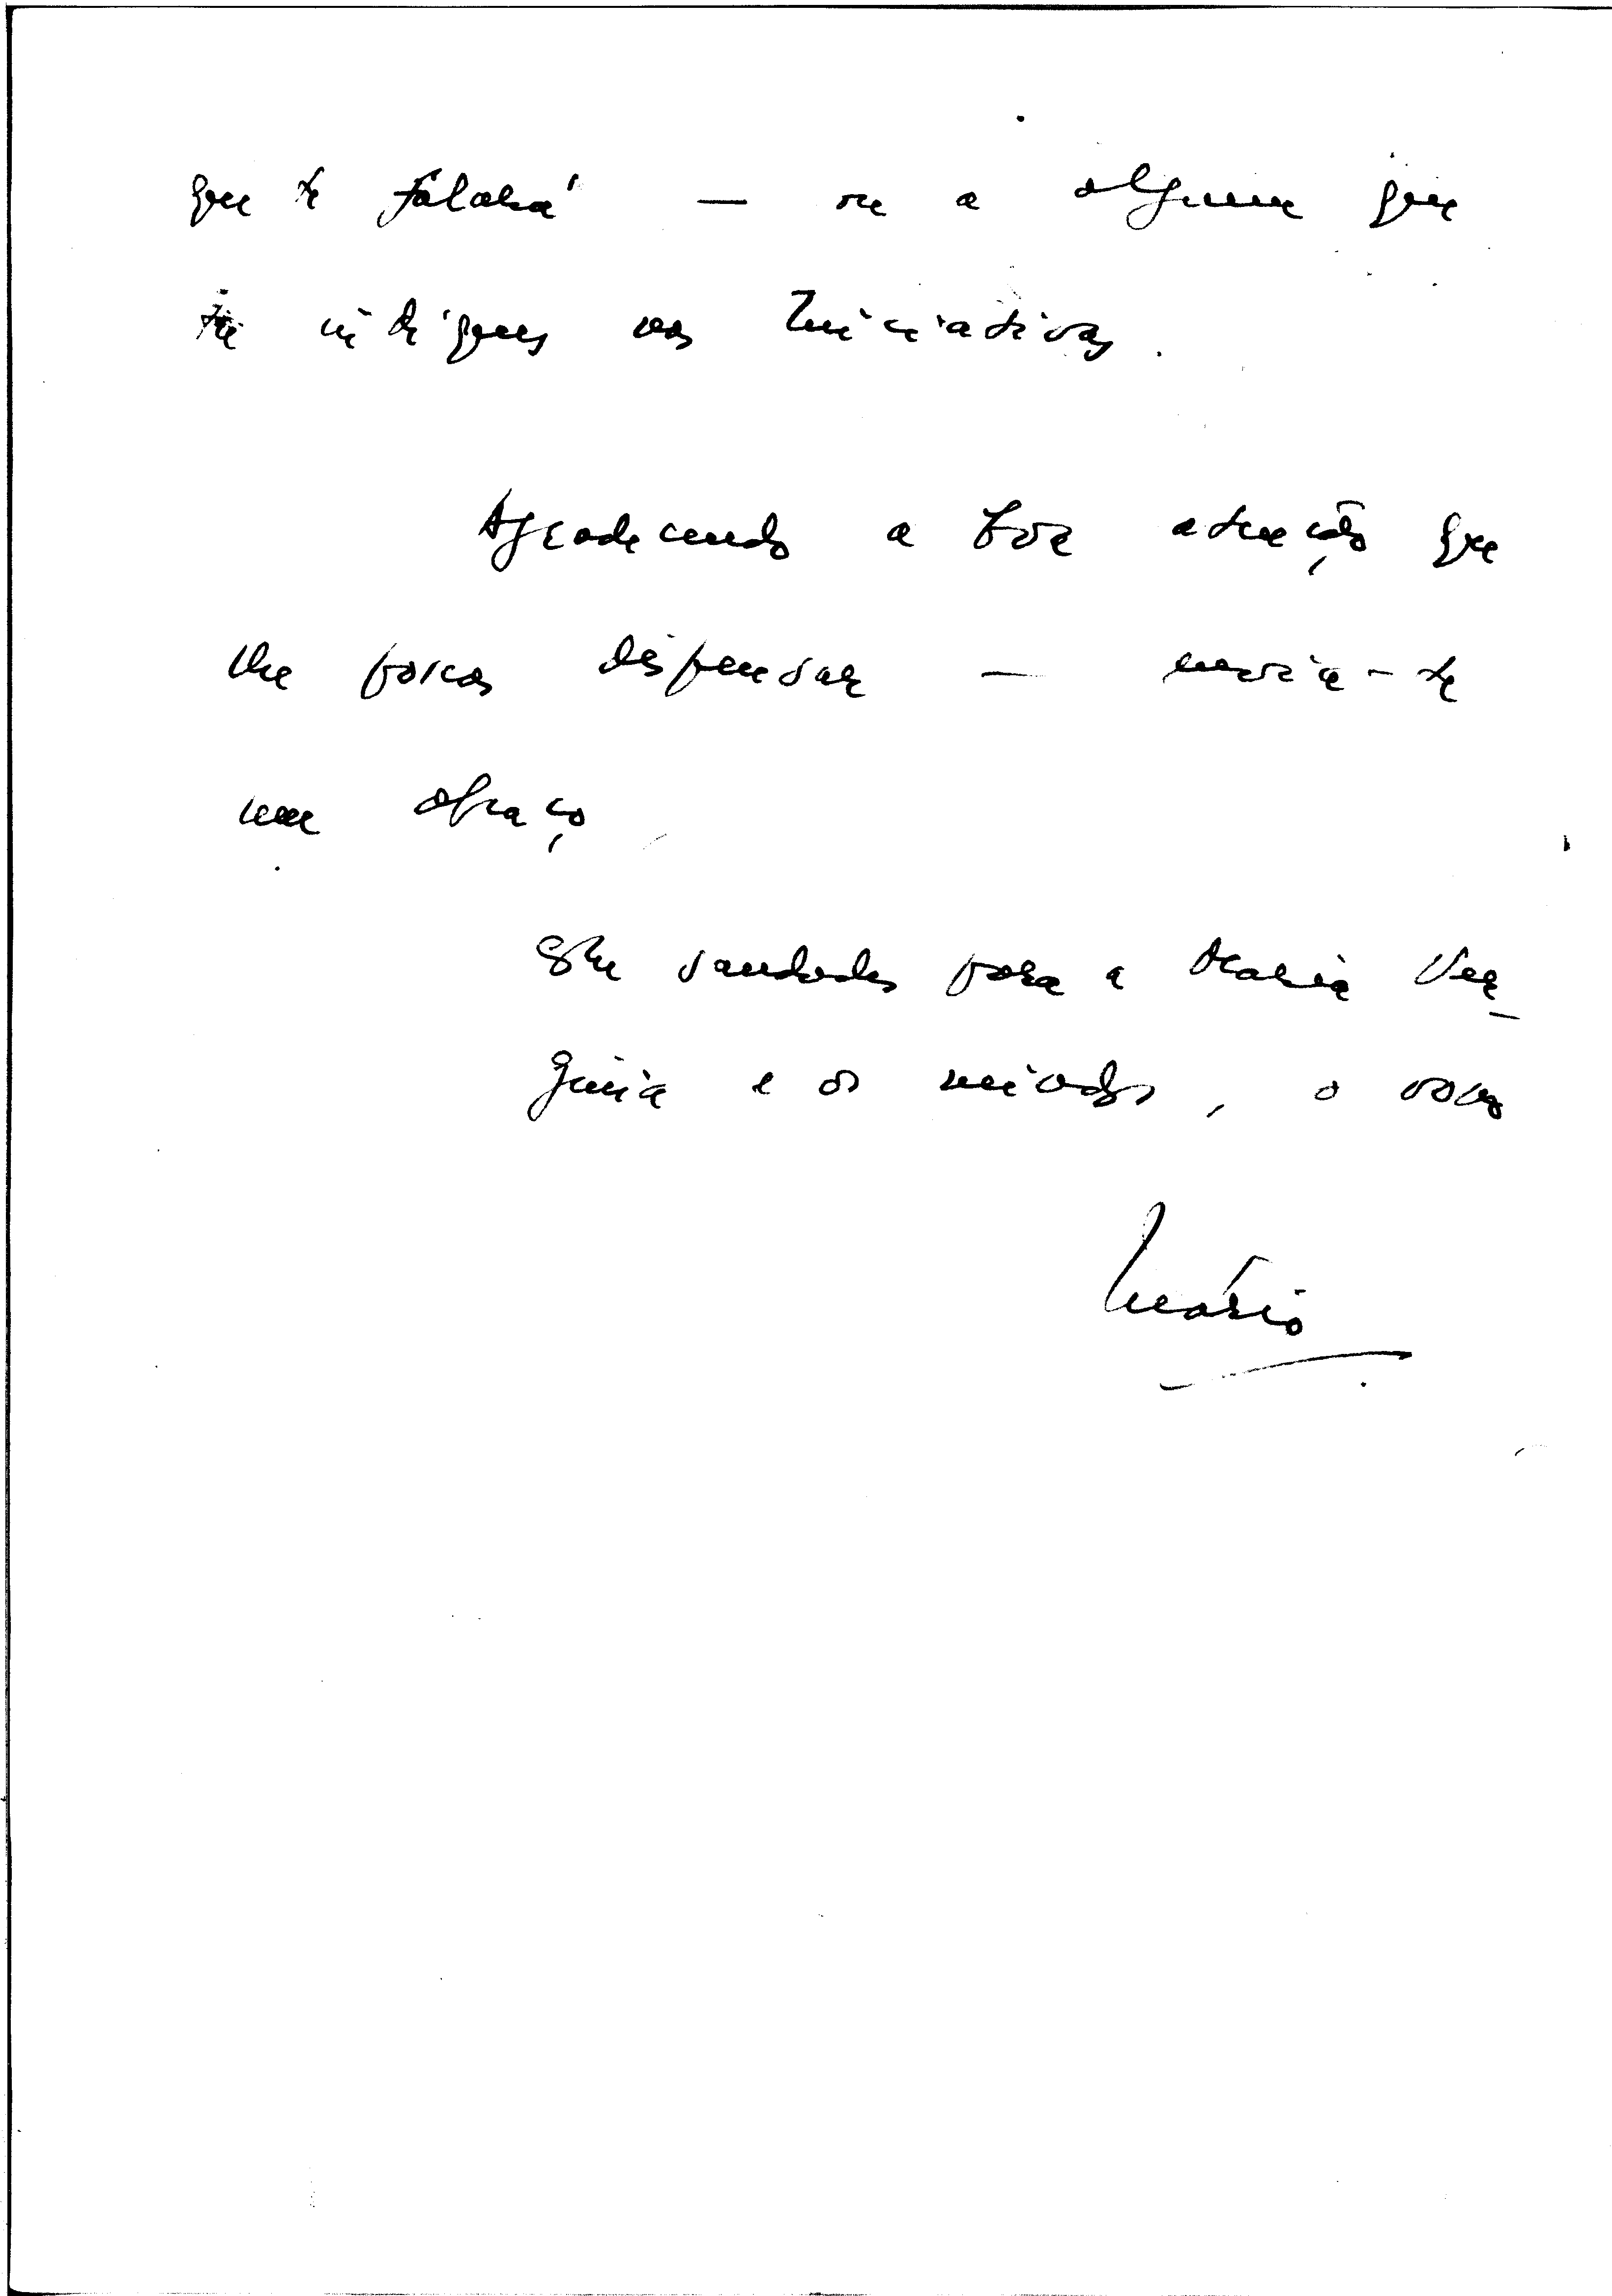 que te falará — ou a alguem que
tu indiques nas Iniciativas.
Agradecendo a boa atenção que
lhe possas dispensar — envia-te
um abraço
saudades para a Maria Ver-
ginia e os miudos, o vosso
Mário